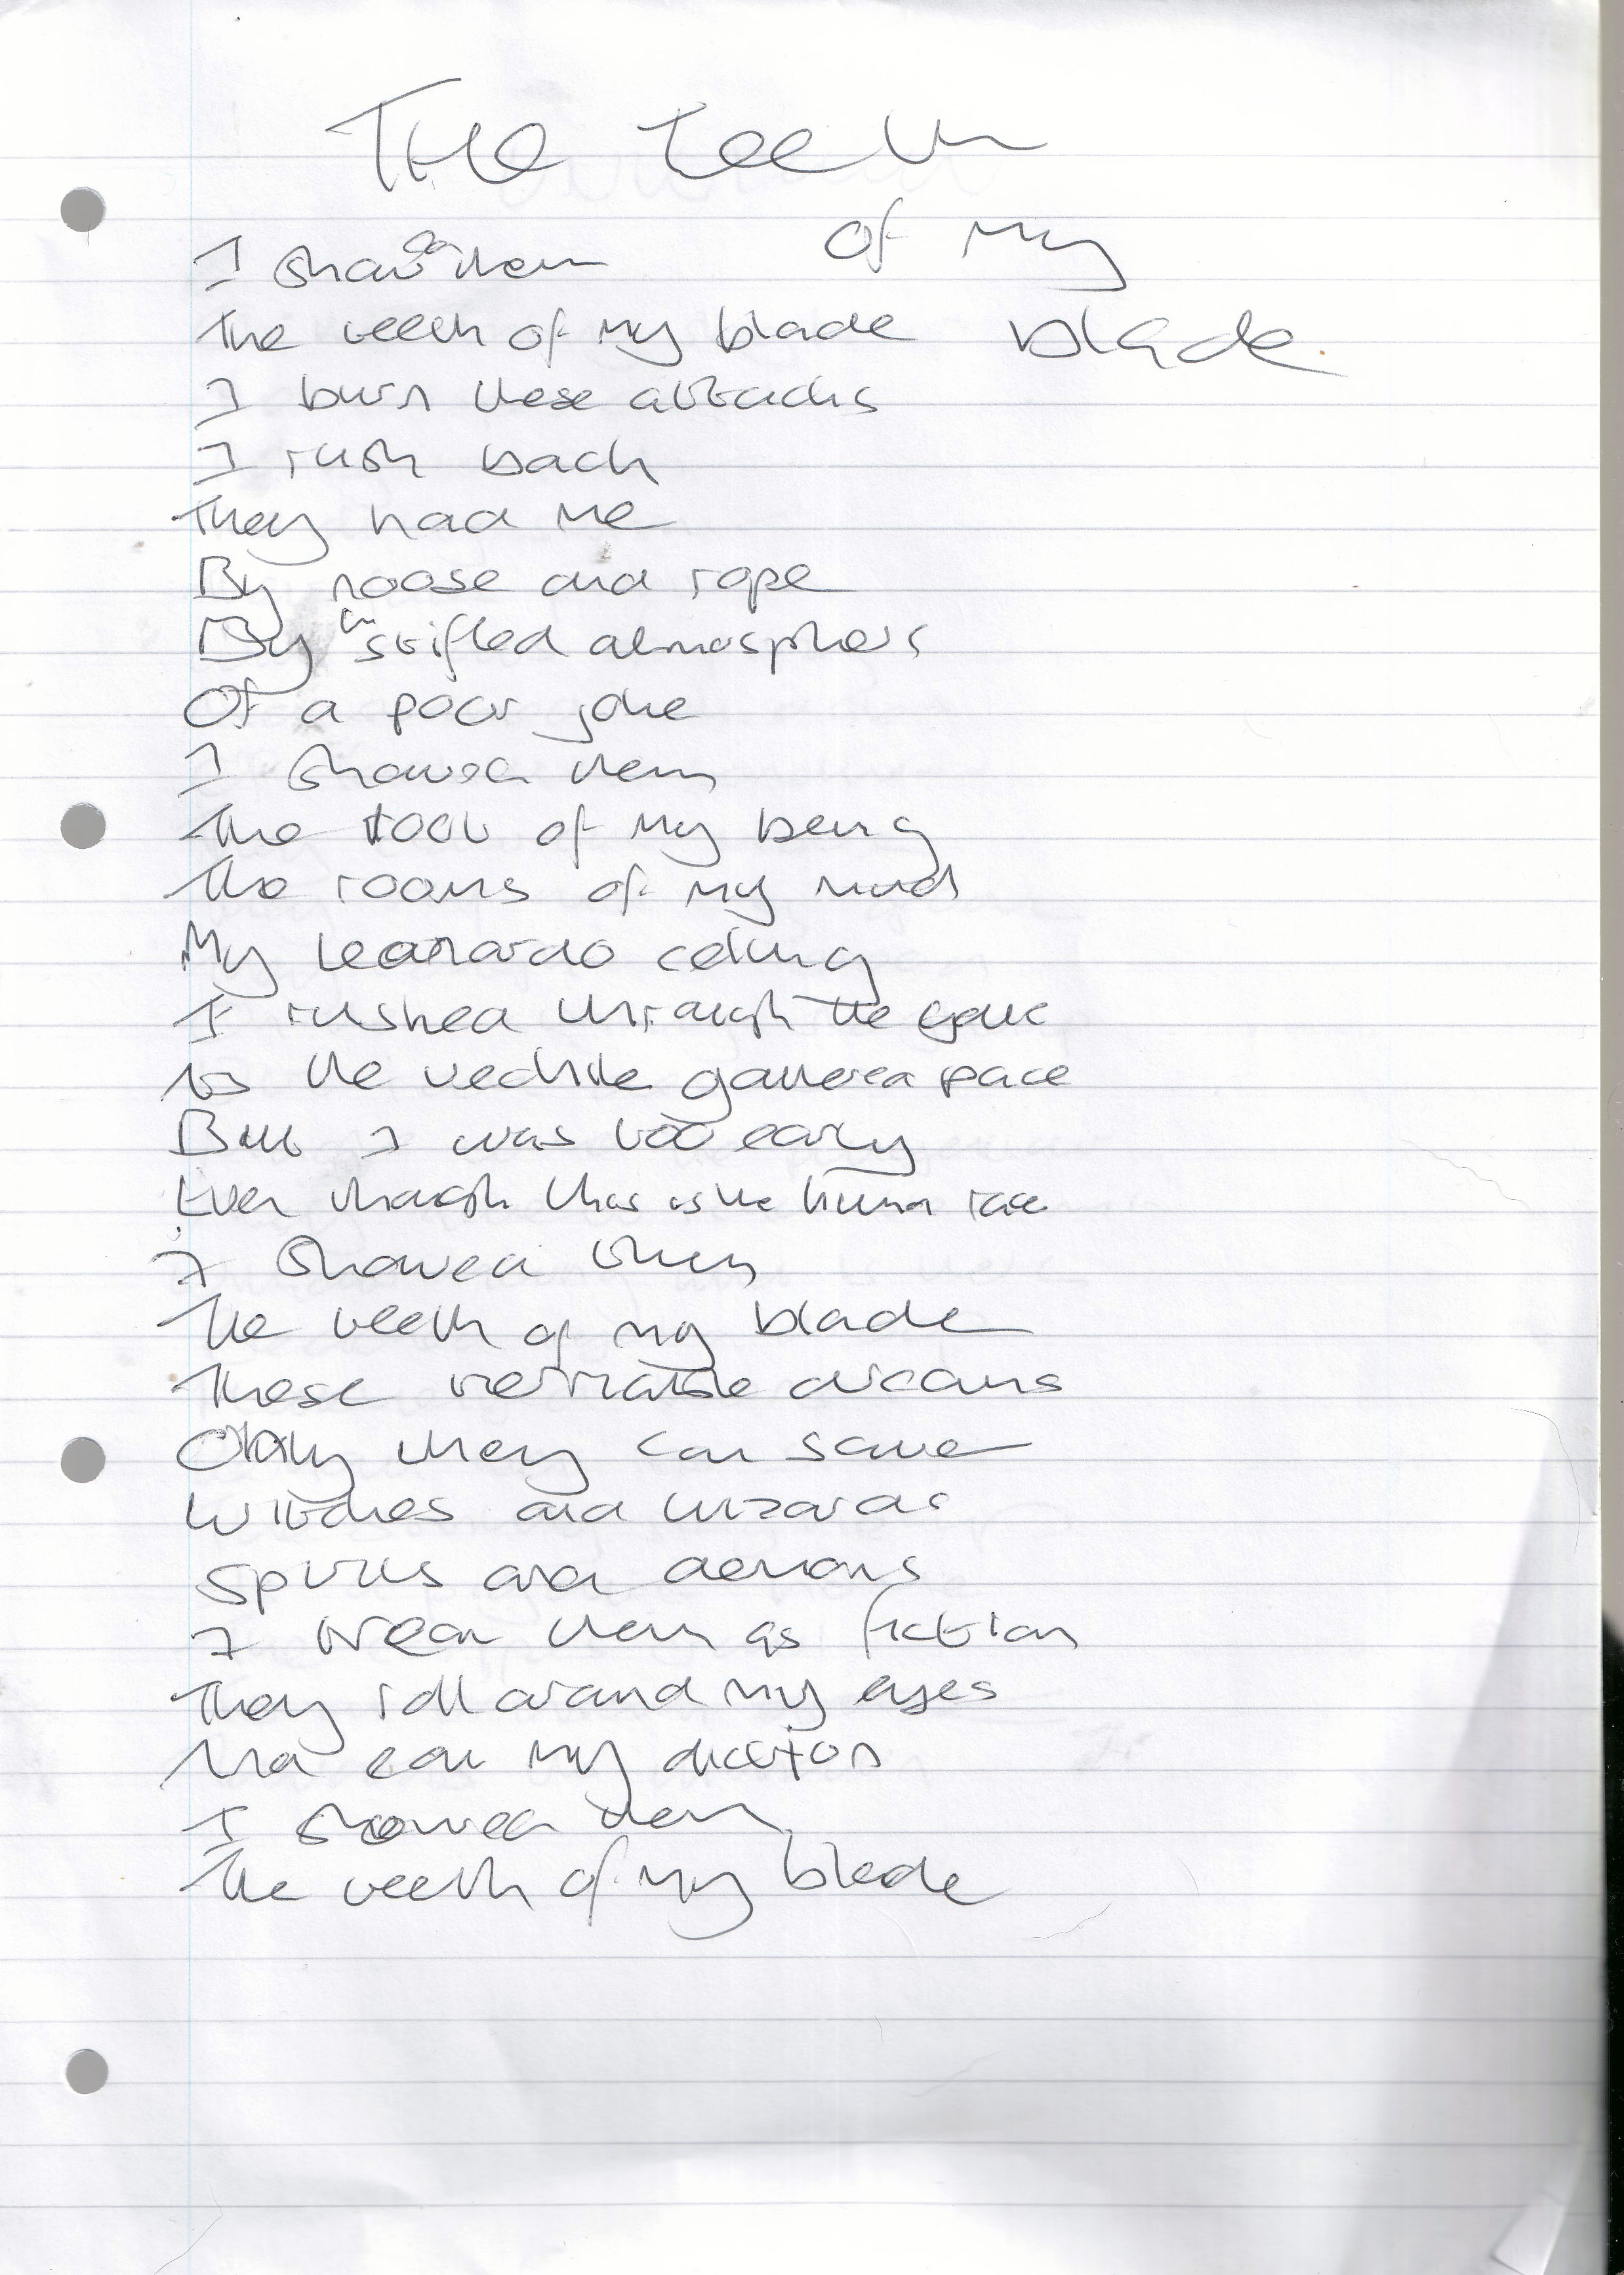 The teeth
of my
blade.
I showed them
the teeth of my blade
I burn these attacks
I rush back
They had me
By noose and rope
By in stifled atmospheres
Of a poor joke
I showed them
The root of my being
The rooms of my mind
My Leonardo ceiling
I rushed through the gate
As the vechile gathered pace
But I was too early
Even though this is the human race
I showed them
The teeth of my blade
These dreams
Okay they can save
Witches and wizards
Spirits and demons
I wear them as fiction
They roll around my eyes
And eat my diction
I showed them
The teeth of my blade